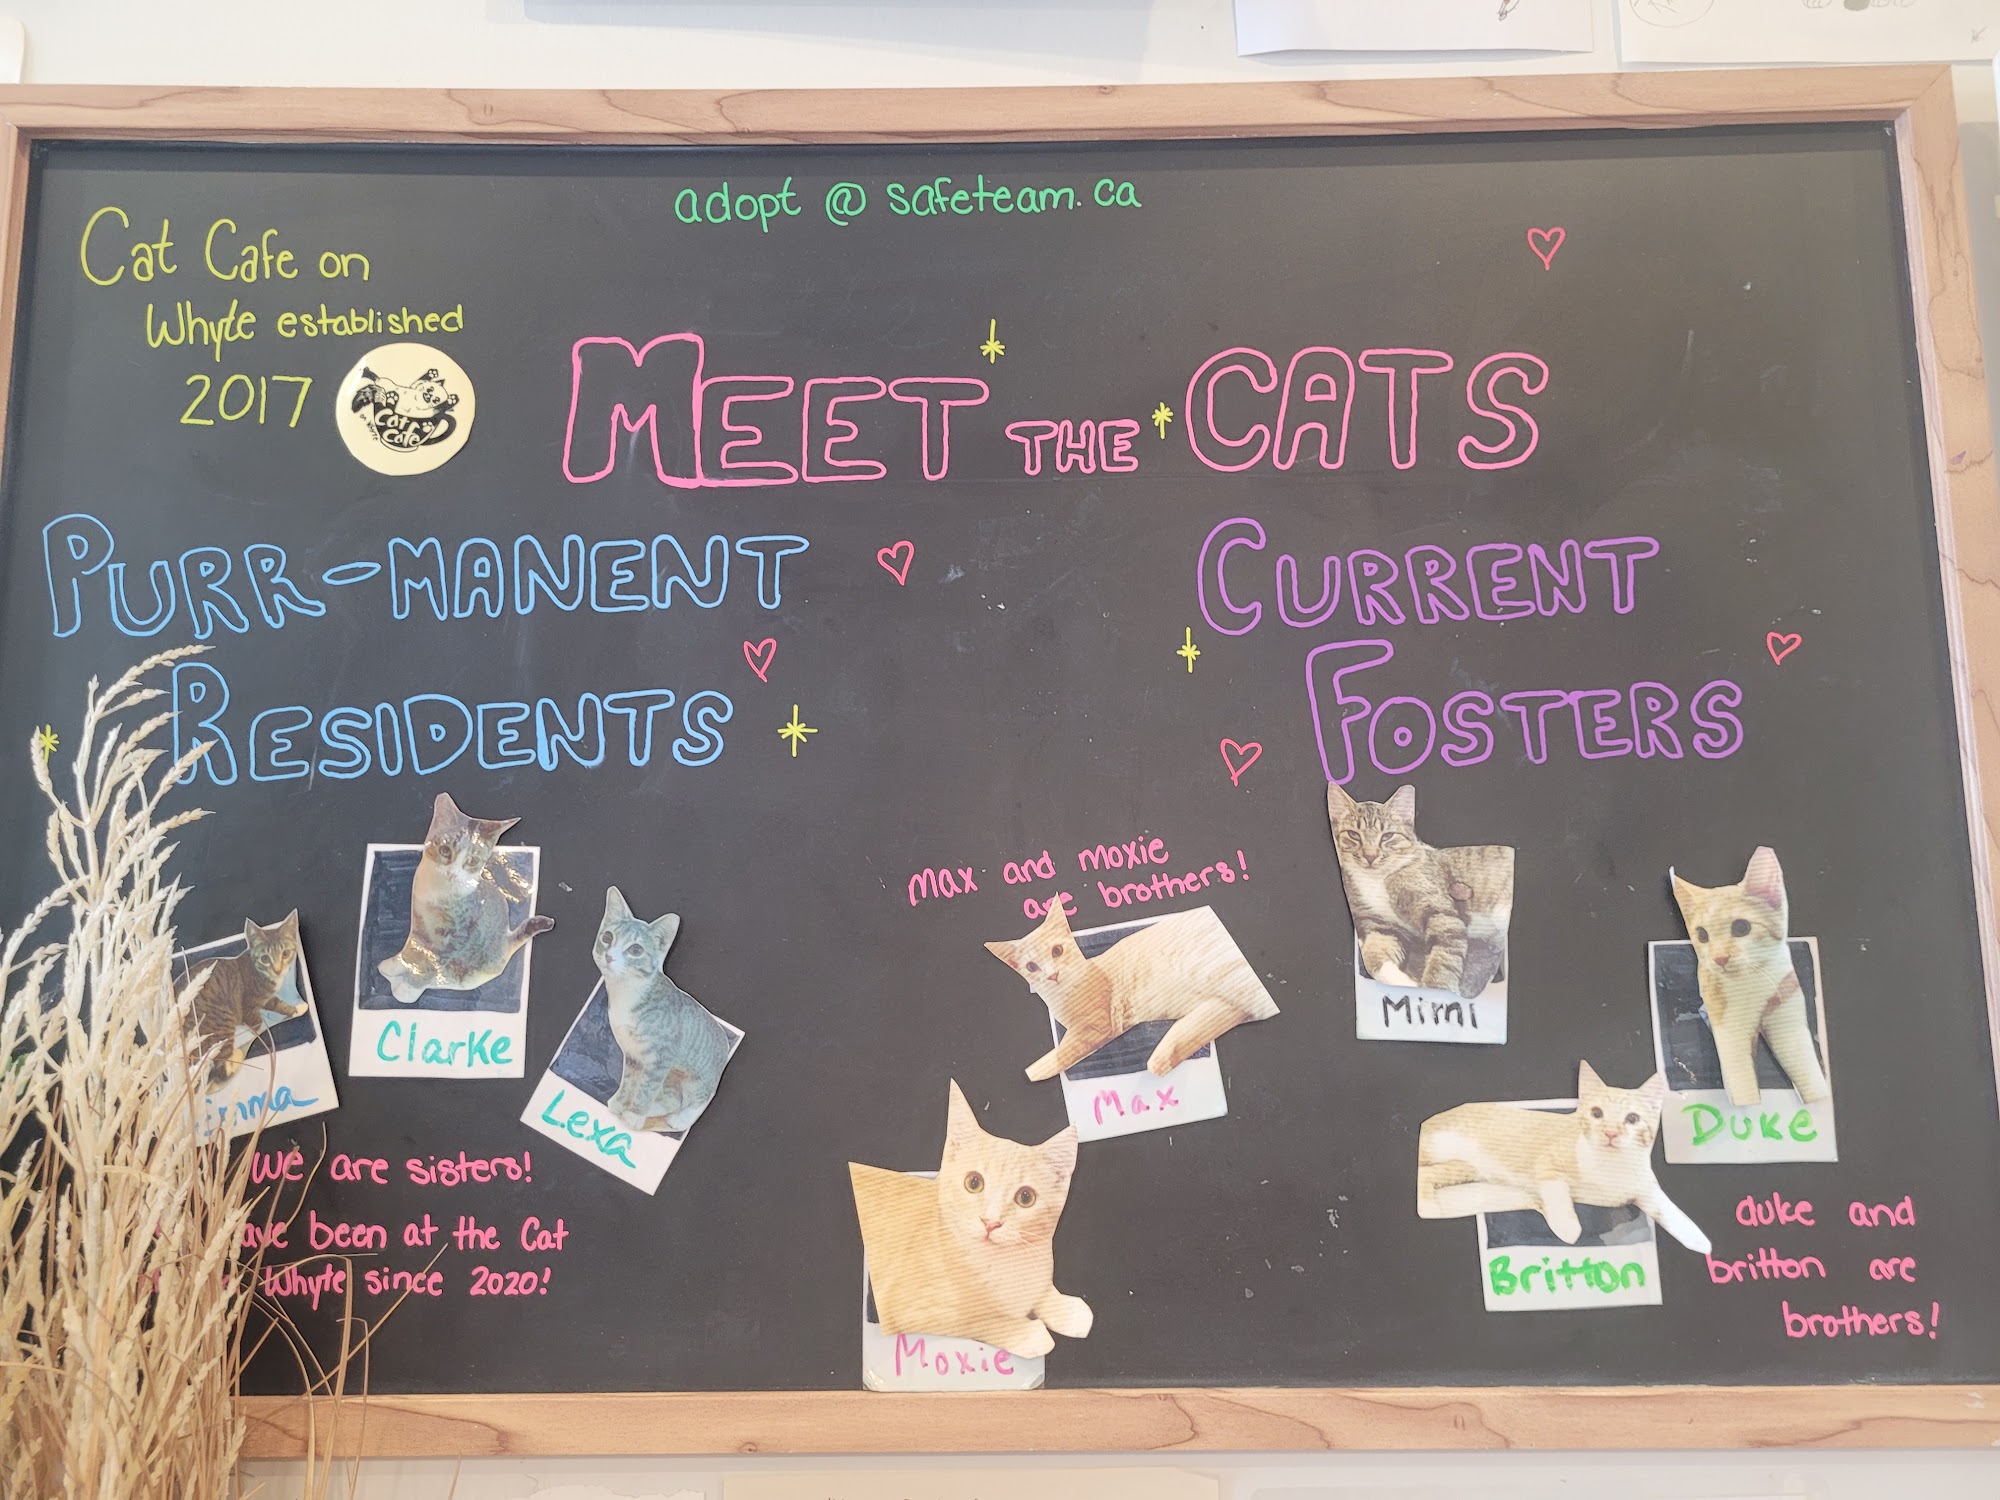 adopt @ safeteam.ca
Cat Cafe on
Whyte established
2017
Cat Cafe
ON WHYTE
MEET THE CATS
PURR-MANENT
RESIDENTS
CURRENT
FOSTERS
Emma
Clarke
Lexa
We are sisters!
been at the Cat
Whyte since 2020!
Max and Moxie
are brothers!
Max
Moxie
Mimi
Duke
Britton
duke and
britton are
brothers!